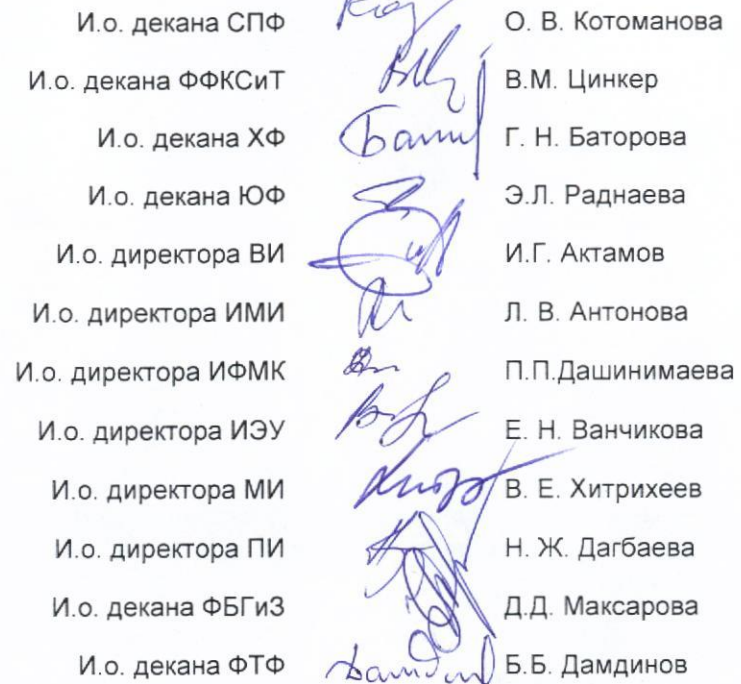 И.о. декана СПФ О. В. Котоманова
И.о. декана ФФКСиТ В.М. Цинкер
И.о. декана ХФ Г. Н. Баторова
И.о. декана ЮФ Э.Л. Раднаева
И.о. директора ВИ И.Г. Актамов
И.о. директора ИМИ Л. В. Антонова
И.о. директора ИФМК П.П.Дашинимаева
И.о. директора ИЭУ Е. Н. Ванчикова
И.о. директора МИ В. Е. Хитрихеев
И.о. директора ПИ Н. Ж. Дагбаева
И.о. декана ФБГиЗ Д.Д. Максарова
И.о. декана ФТФ Б.Б. Дамдинов